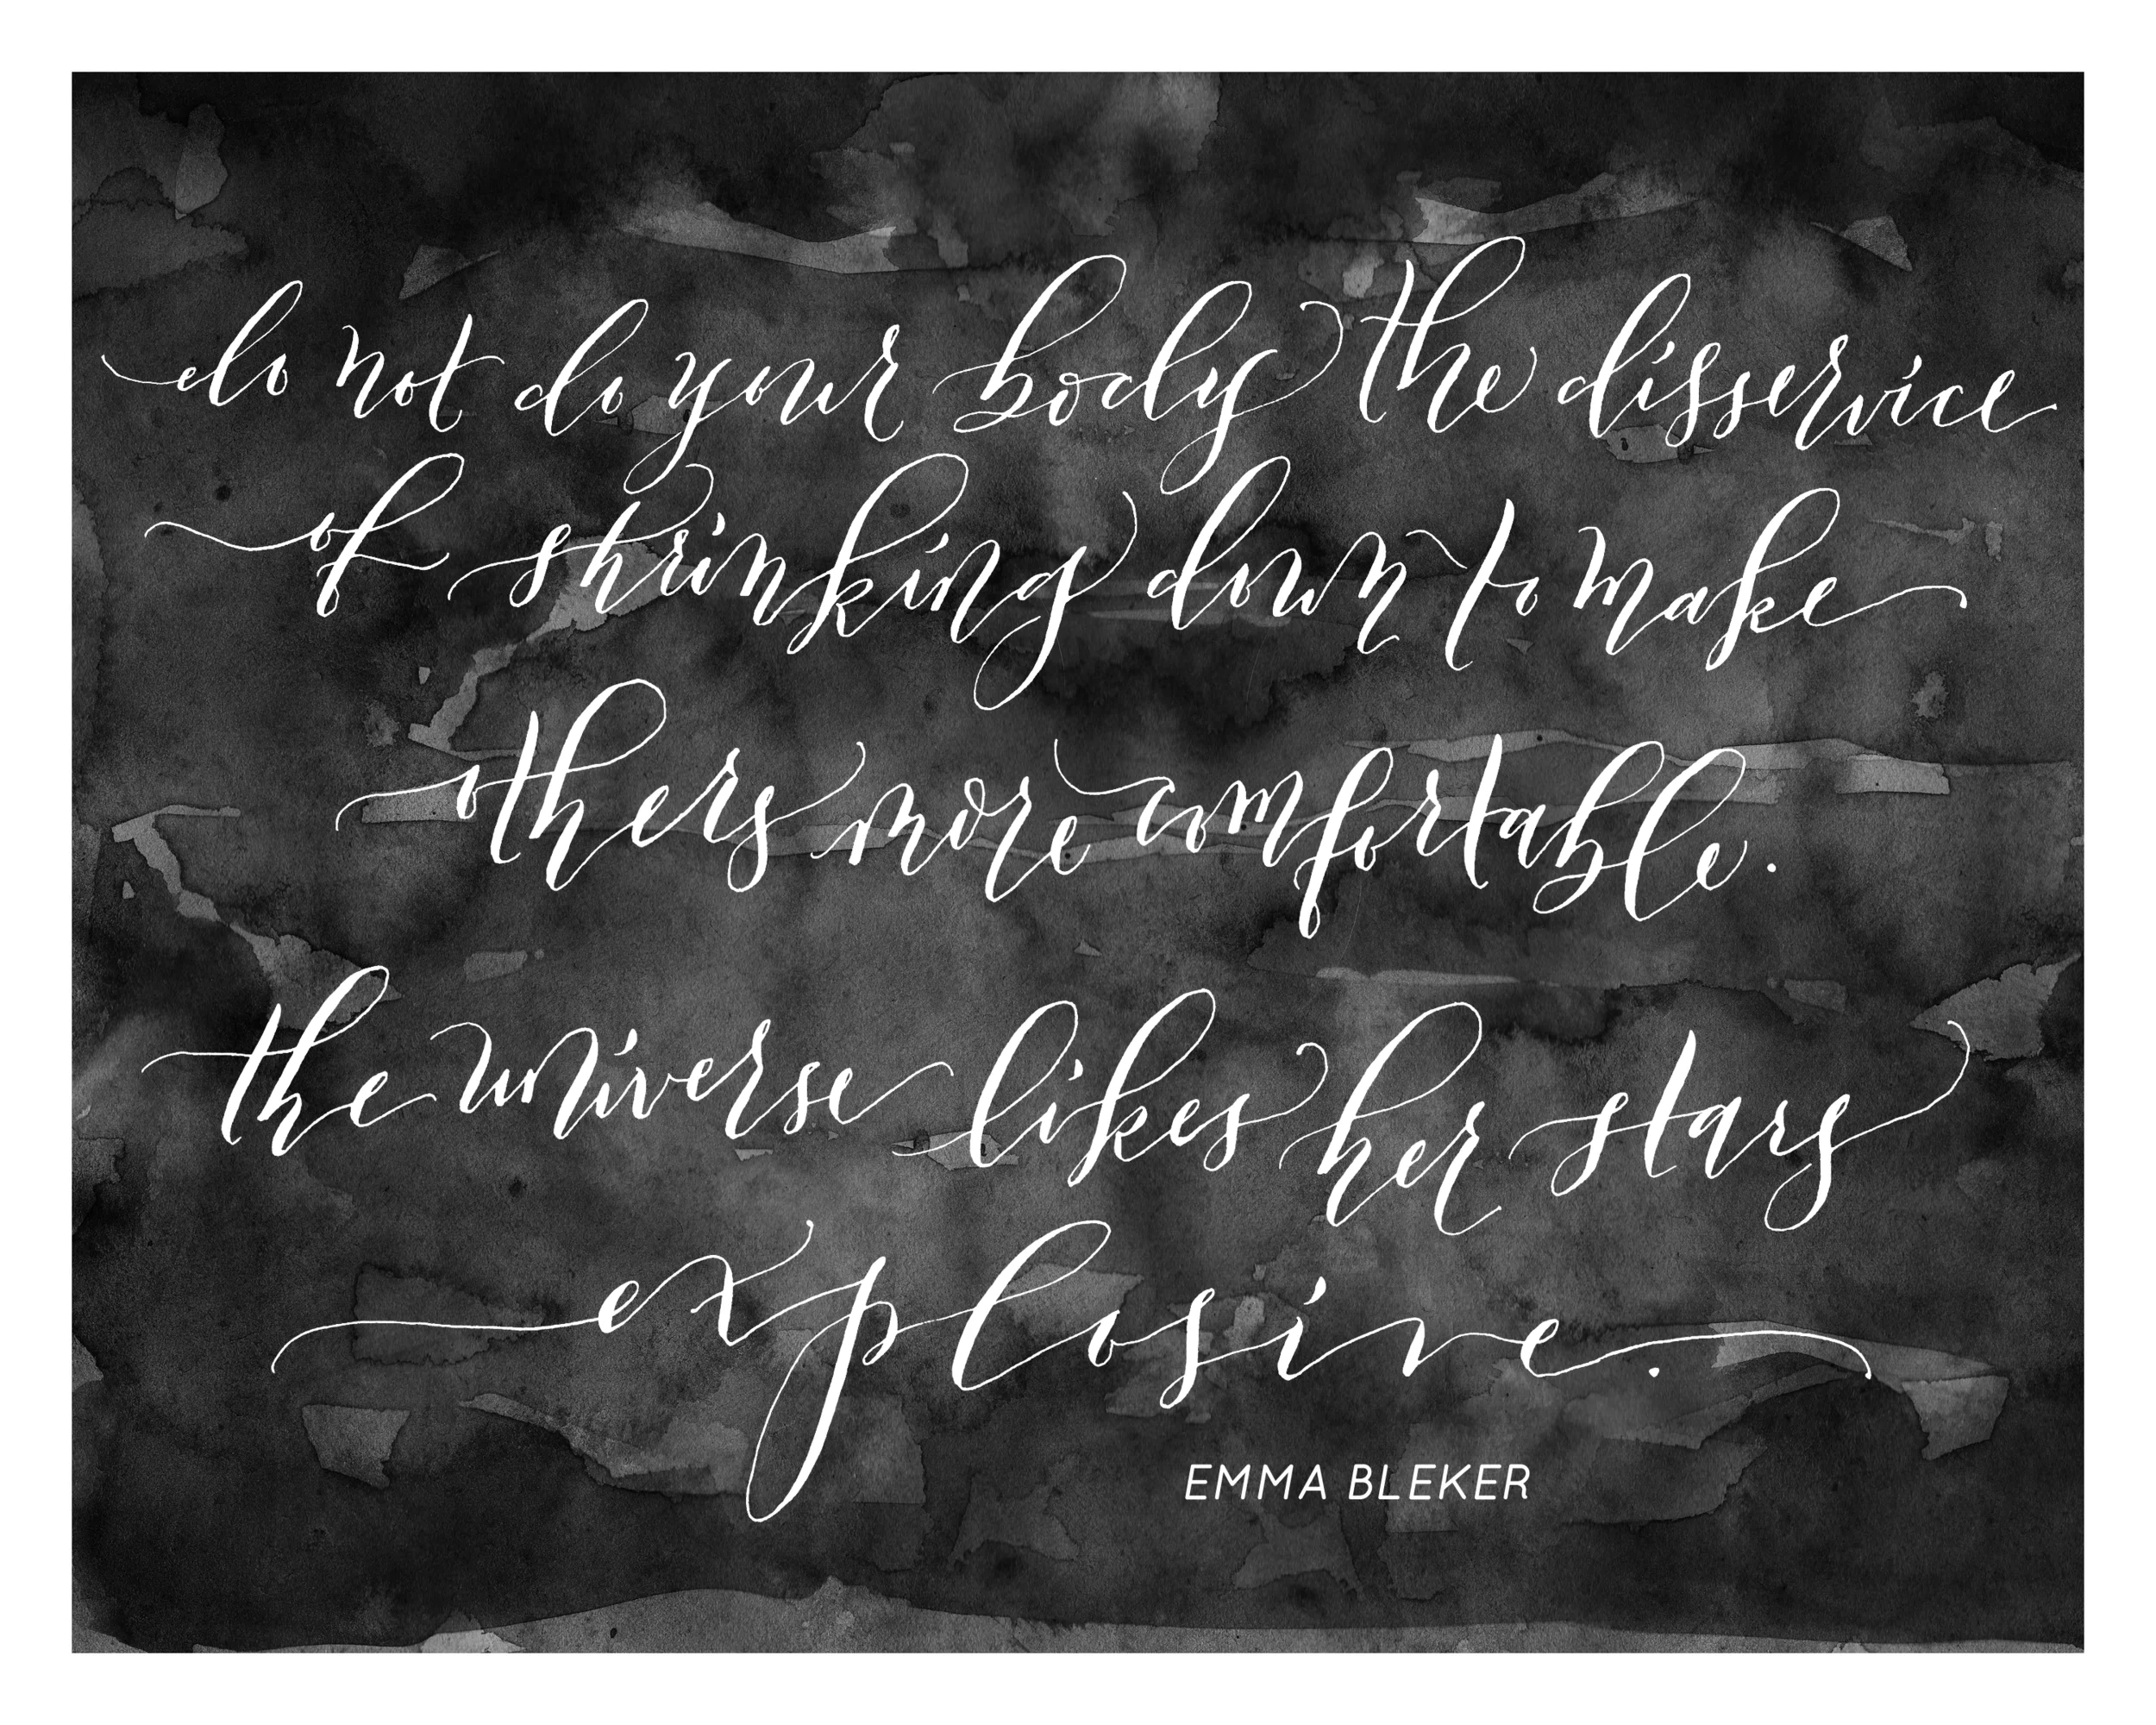 do not do your body the disservice
of shrinking down to make
others more comfortable.
the universe likes her stars
explosive.
EMMA BLEKER